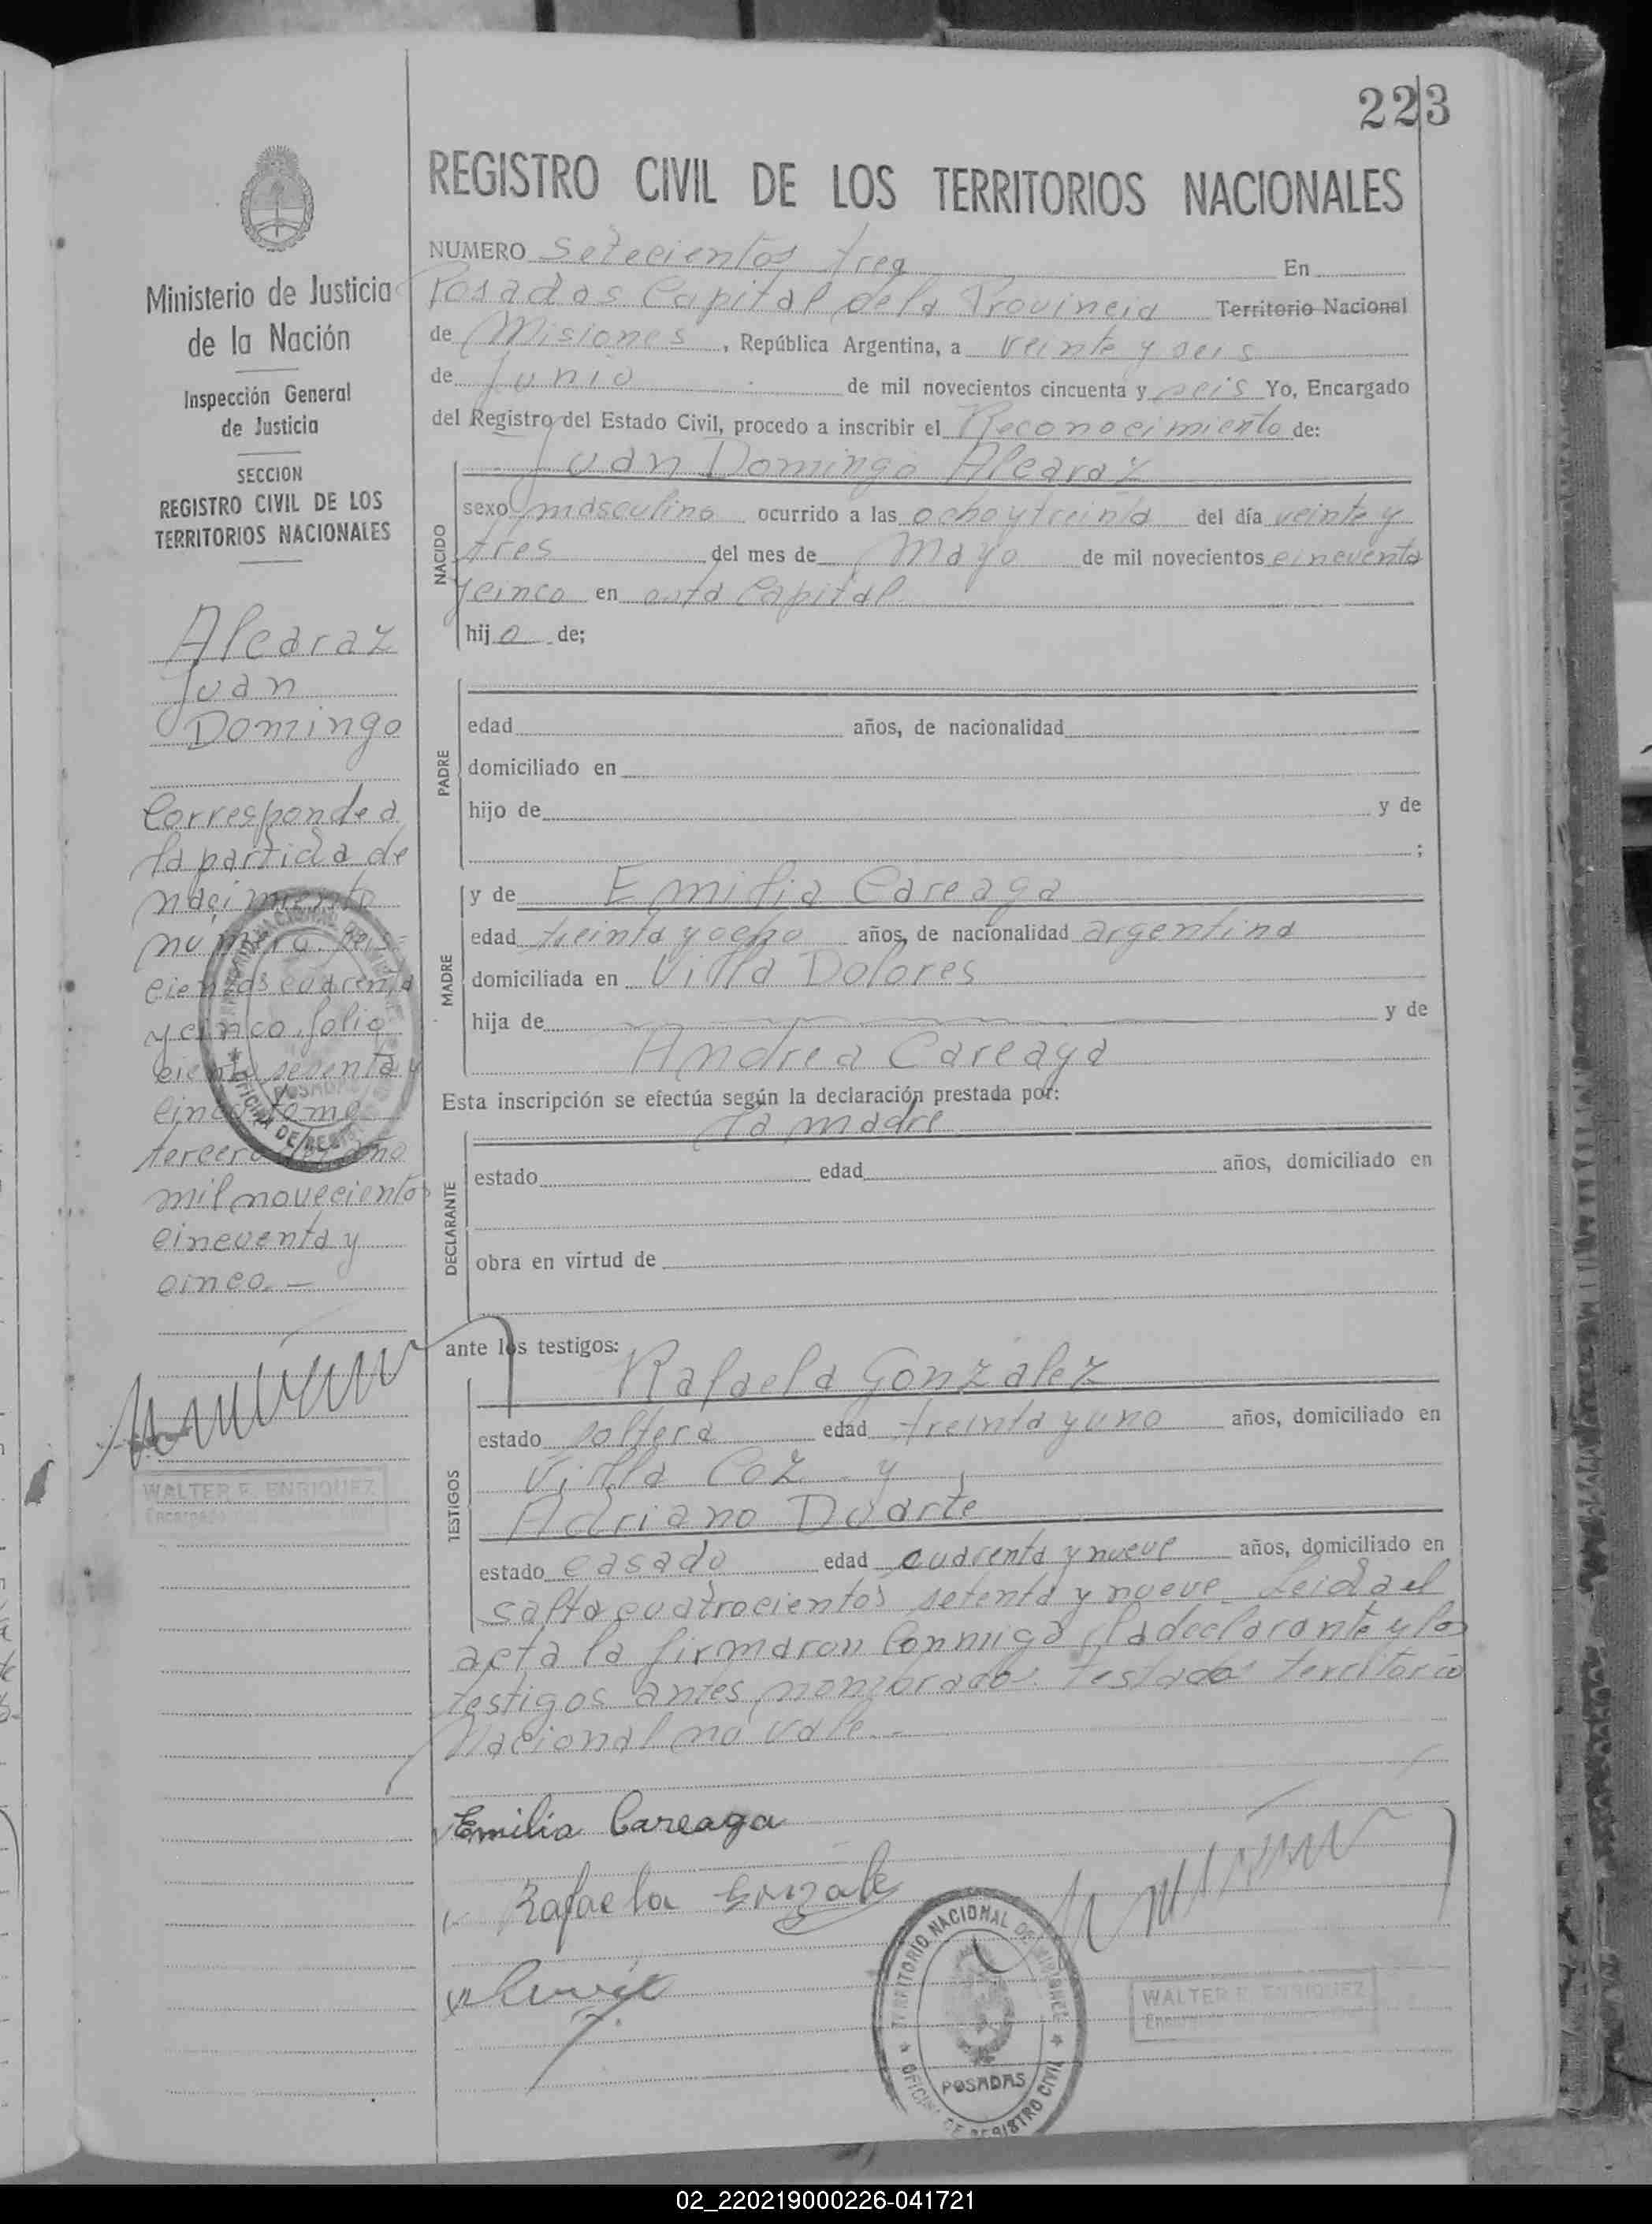 223
REGISTRO CIVIL DE LOS TERRITORIOS NACIONALES
NUMERO Setecientos tres En
Posadas Capital de la Provincia Territorio Nacional
de Misiones, República Argentina, a veinte y seis
de Junio de mil novecientos cincuenta y seis Yo, Encargado
del Registro del Estado Civil, procedo a inscribir el Reconocimiento de:
Juan Domingo Alcaraz
NACIDO
sexo masculino ocurrido a las ocho y treinta del día veinte y
tres del mes de Mayo de mil novecientos cincuenta
y cinco en esta Capital
hijo de;
PADRE
edad años, de nacionalidad
domiciliado en
hijo de y de
;
MADRE
y de Emilia Careaga
edad treinta y ocho años, de nacionalidad argentina
domiciliada en Villa Dolores
hija de y de
Andrea Careaga
Esta inscripción se efectúa según la declaración prestada por:
La madre
DECLARANTE
estado edad años, domiciliado en
obra en virtud de
ante los testigos:
TESTIGOS
Rafaela Gonzalez
estado soltera edad treinta y uno años, domiciliado en
Villa Coz y
Adriano Duarte
estado casado edad cuarenta y nueve años, domiciliado en
salta cuatrocientos setenta y nueve Leida el
acta la firmaron conmigo la declarante y los
testigos antes nombrados. Testado territorio
Nacional no vale.-
Emilia Careaga
Rafaela Gonzale
TERRITORIO NACIONAL DE MISIONES
POSADAS
OFICINA DE REGISTRO CIVIL
WALTER E. ENRIQUEZ
Ministerio de Justicia
de la Nación
Inspección General
de Justicia
SECCION
REGISTRO CIVIL DE LOS
TERRITORIOS NACIONALES
Alcaraz
Juan
Domingo
Corresponde a
la partida de
nacimiento
número seis=
cientos cuarenta
y cinco, folio
ciento sesenta y
cinco tomo
tercero del año
mil novecientos
cincuenta y
cinco.-
POSADAS
OFICINA DE REGIS
WALTER E. ENRIQUEZ
02_220219000226-041721